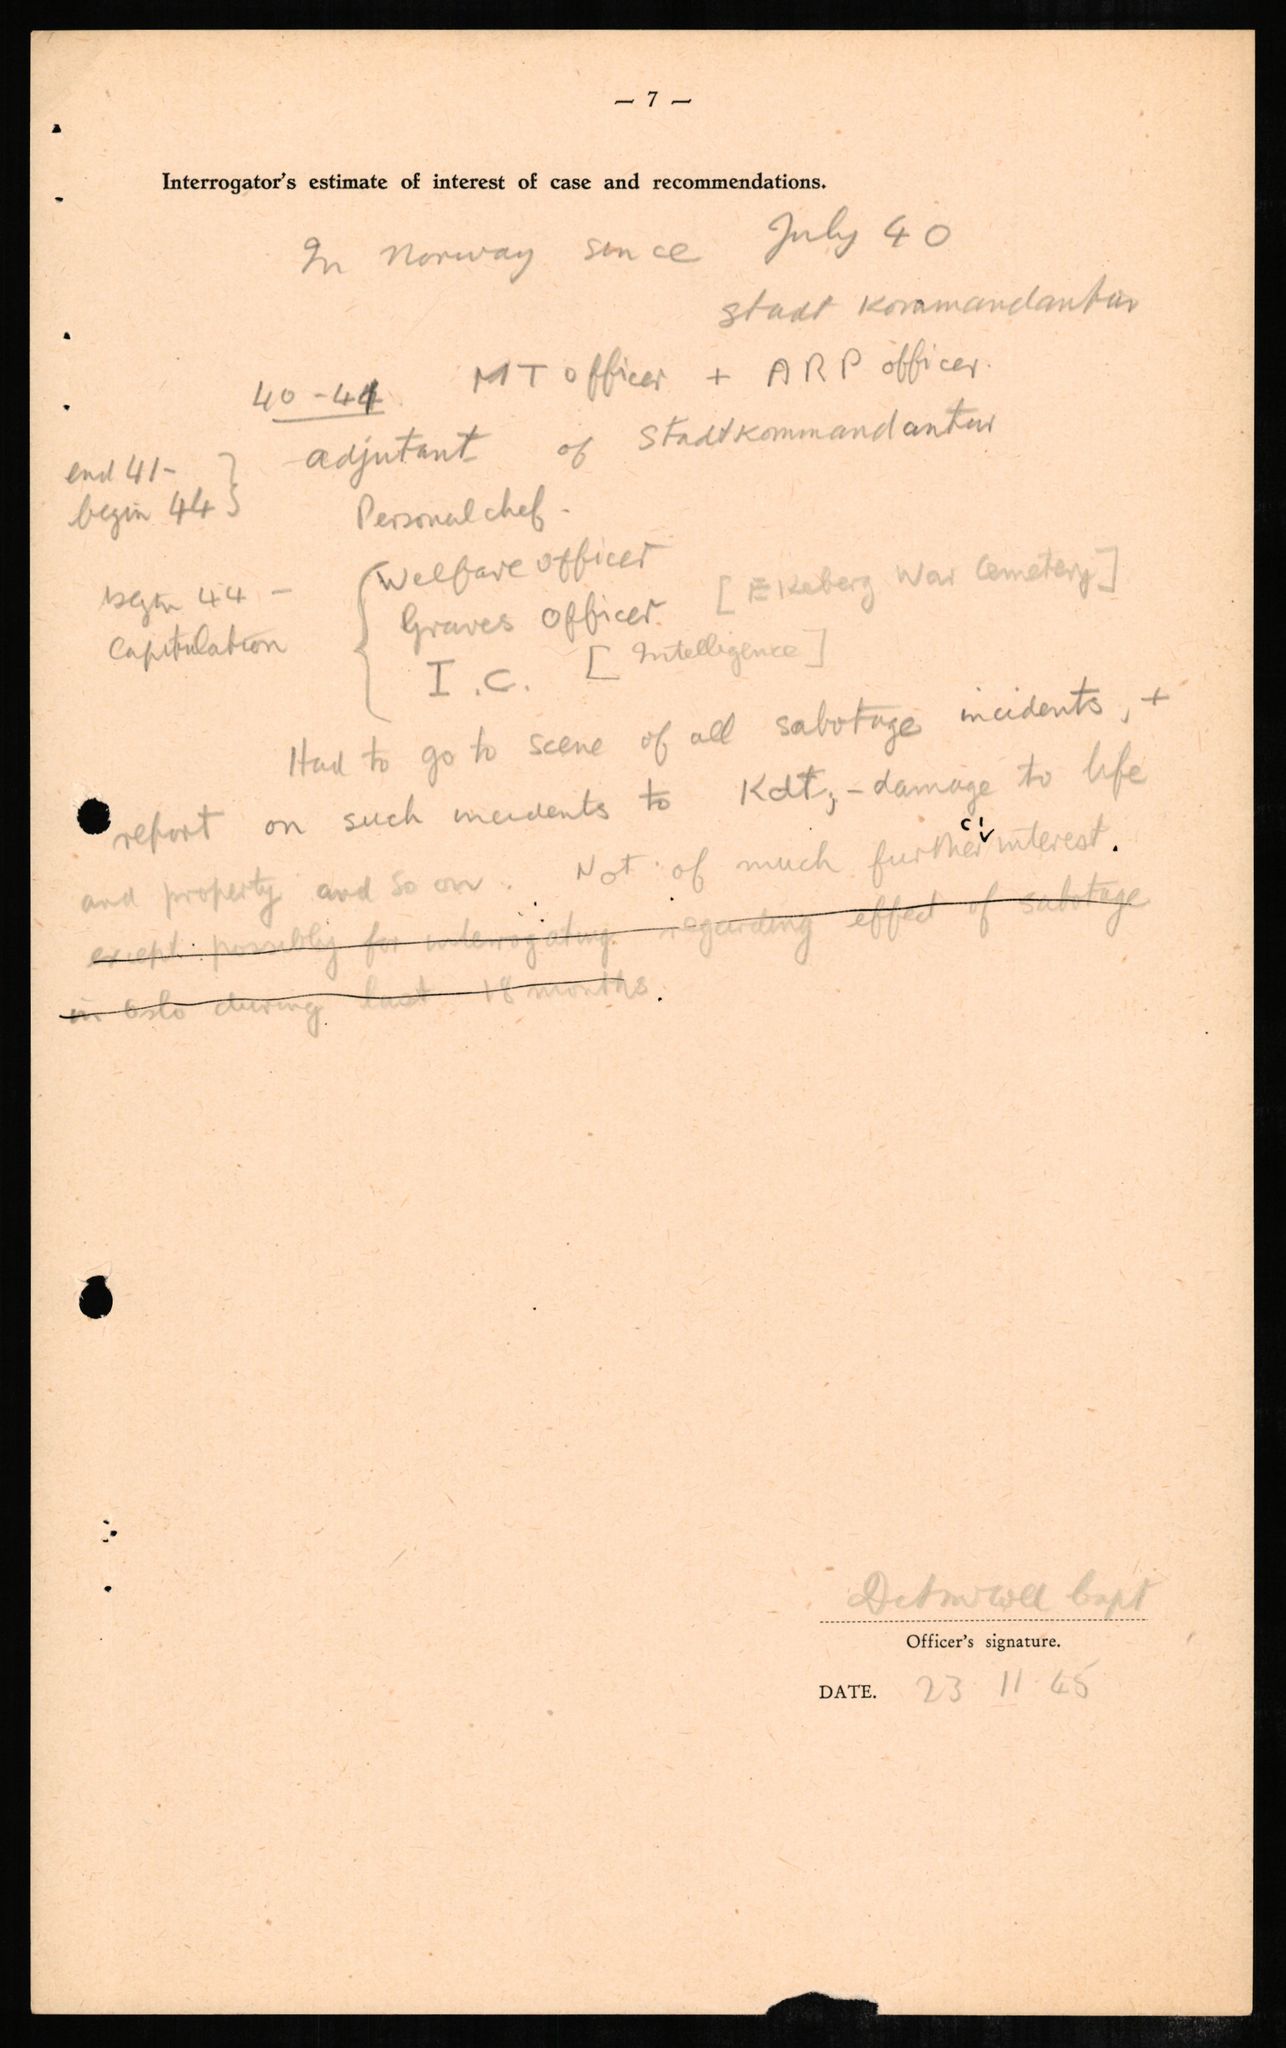 — 7 —
Interrogator's estimate of interest of case and recommendations.
In Norway since July 40
Stadt Kommandantur
40-41 MT officer + ARP officer.
end 41- adjutant of Stadtkommandantur
begin 44 } Personalchef.
begin 44 - { Welfare officer
Capitulation Graves Officer. [Ekeberg War Cemetery]
I.C. [Intelligence]
Had to go to scene of all sabotage incidents, +
report on such incidents to Kdt, - damage to life
and property and so on. Not of much further CI interest.
except possibly for interrogating regarding effect of sabotage
in Oslo during last 18 months.
Capt
Officer's signature.
DATE. 23 11 45